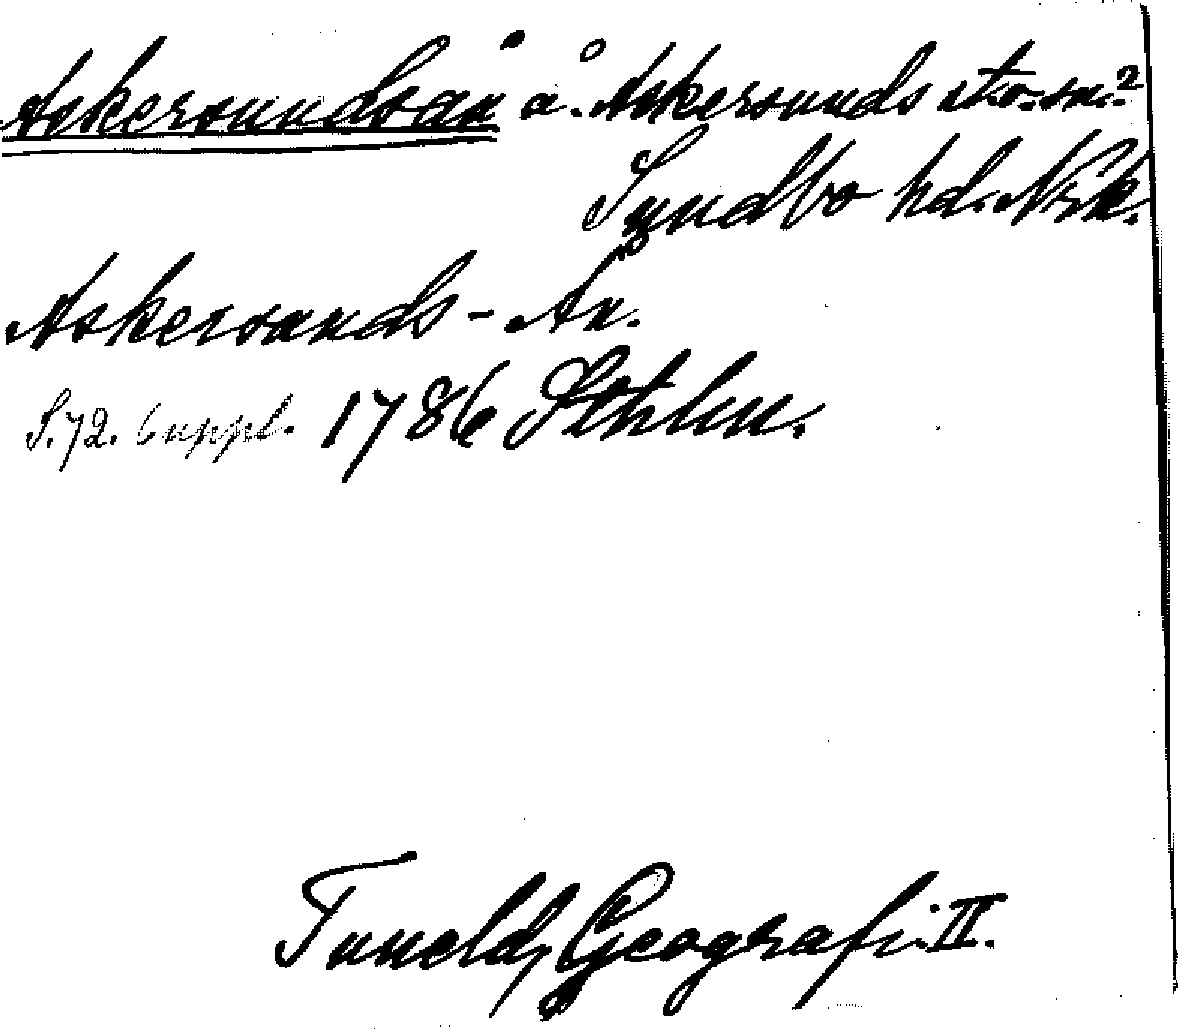 Askersundsån å. Askersunds st. o. sn.?
Sundbo hd. Nrk.
Askersunds-Ån.
S.72. Suppl. 1786 Sthlm.
Tuneld, Geografi. II.